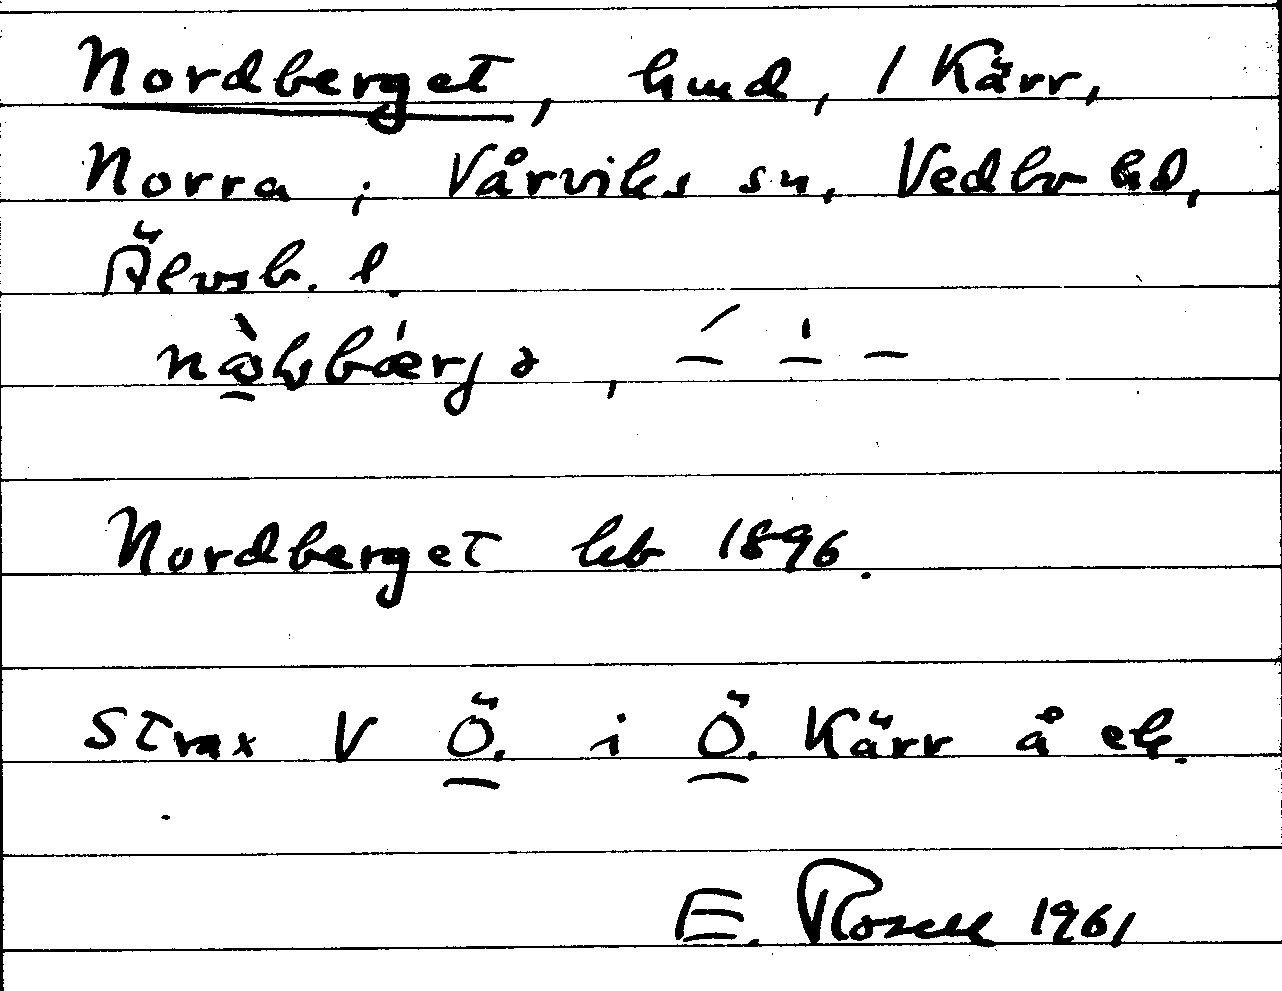 Nordberget, hmd, 1 Kärr,
Norra; Vårviks sn, Vedbo hd,
Älvsb. l.
Nordberget hb 1896.
Strax V Ö. i Ö. Kärr å ek.
E. Rosell 1961